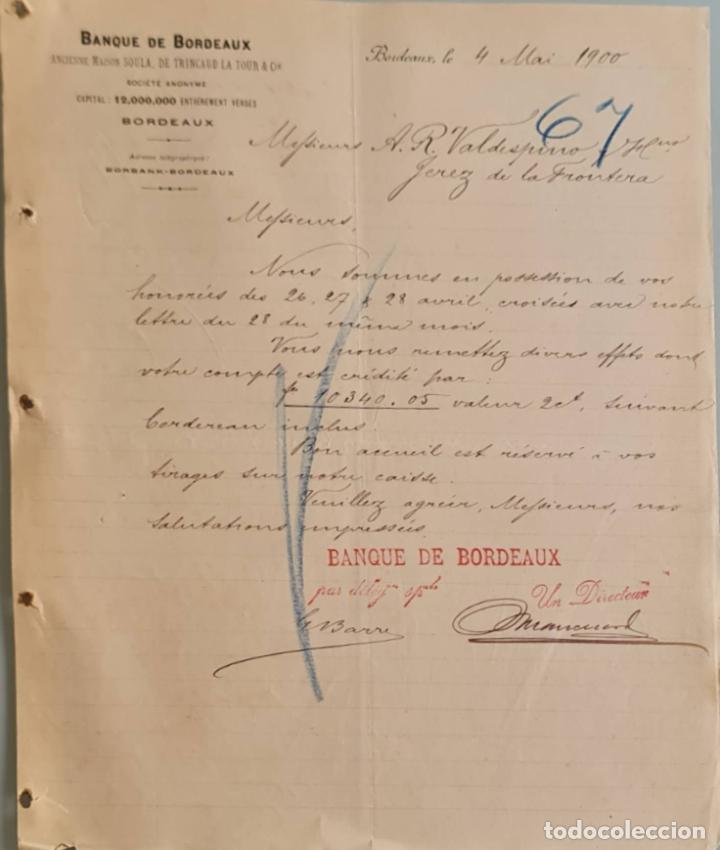 BANQUE DE BORDEAUX
ANCIENNE MAISON SOULA, DE TRINCAUD LA TOUR & Cie
SOCIÉTÉ ANONYME
CAPITAL : 12,000,000 ENTIÈREMENT VERSÉS
BORDEAUX
Adresse télégraphique :
BORBANK-BORDEAUX
Bordeaux, le 4 Mai 1900
67
Messieurs A. R. Valdespino y Hno
Jerez de la Frontera
Messieurs,
Nous sommes en possession de vos
honorées des 26, 27 & 28 avril, croisées avec notre
lettre du 28 du même mois.
Vous nous remettez divers effets dont
votre compte est crédité par :
fr 10340.05 valeur 2 ct, suivant
bordereau inclus.
Bon accueil est réservé à vos
tirages sur notre caisse.
Veuillez agréer, Messieurs, nos
salutations empressées.
BANQUE DE BORDEAUX
par délégon sple
Un Directeur
Barre
todocoleccion